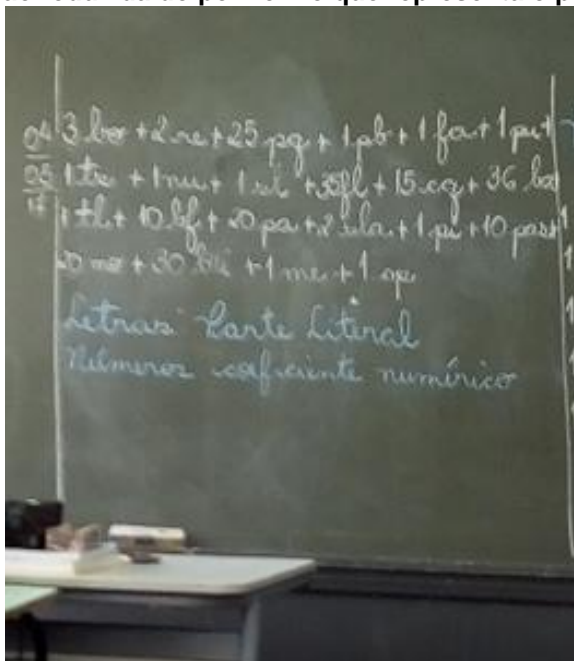 04 3 bo + 2 re + 25 pg + 1 pb + 1 fa + 1 pu +
05 1 te + 1 nu + 1 + 35 fl + 15 cg + 36
17 1 tl + 10 bf + 20 pa + 2 la + 1 pi + 10 pas
20 mo + 30 + 1 me + 1 ap
Letras: Parte Literal
Números coeficiente numérico